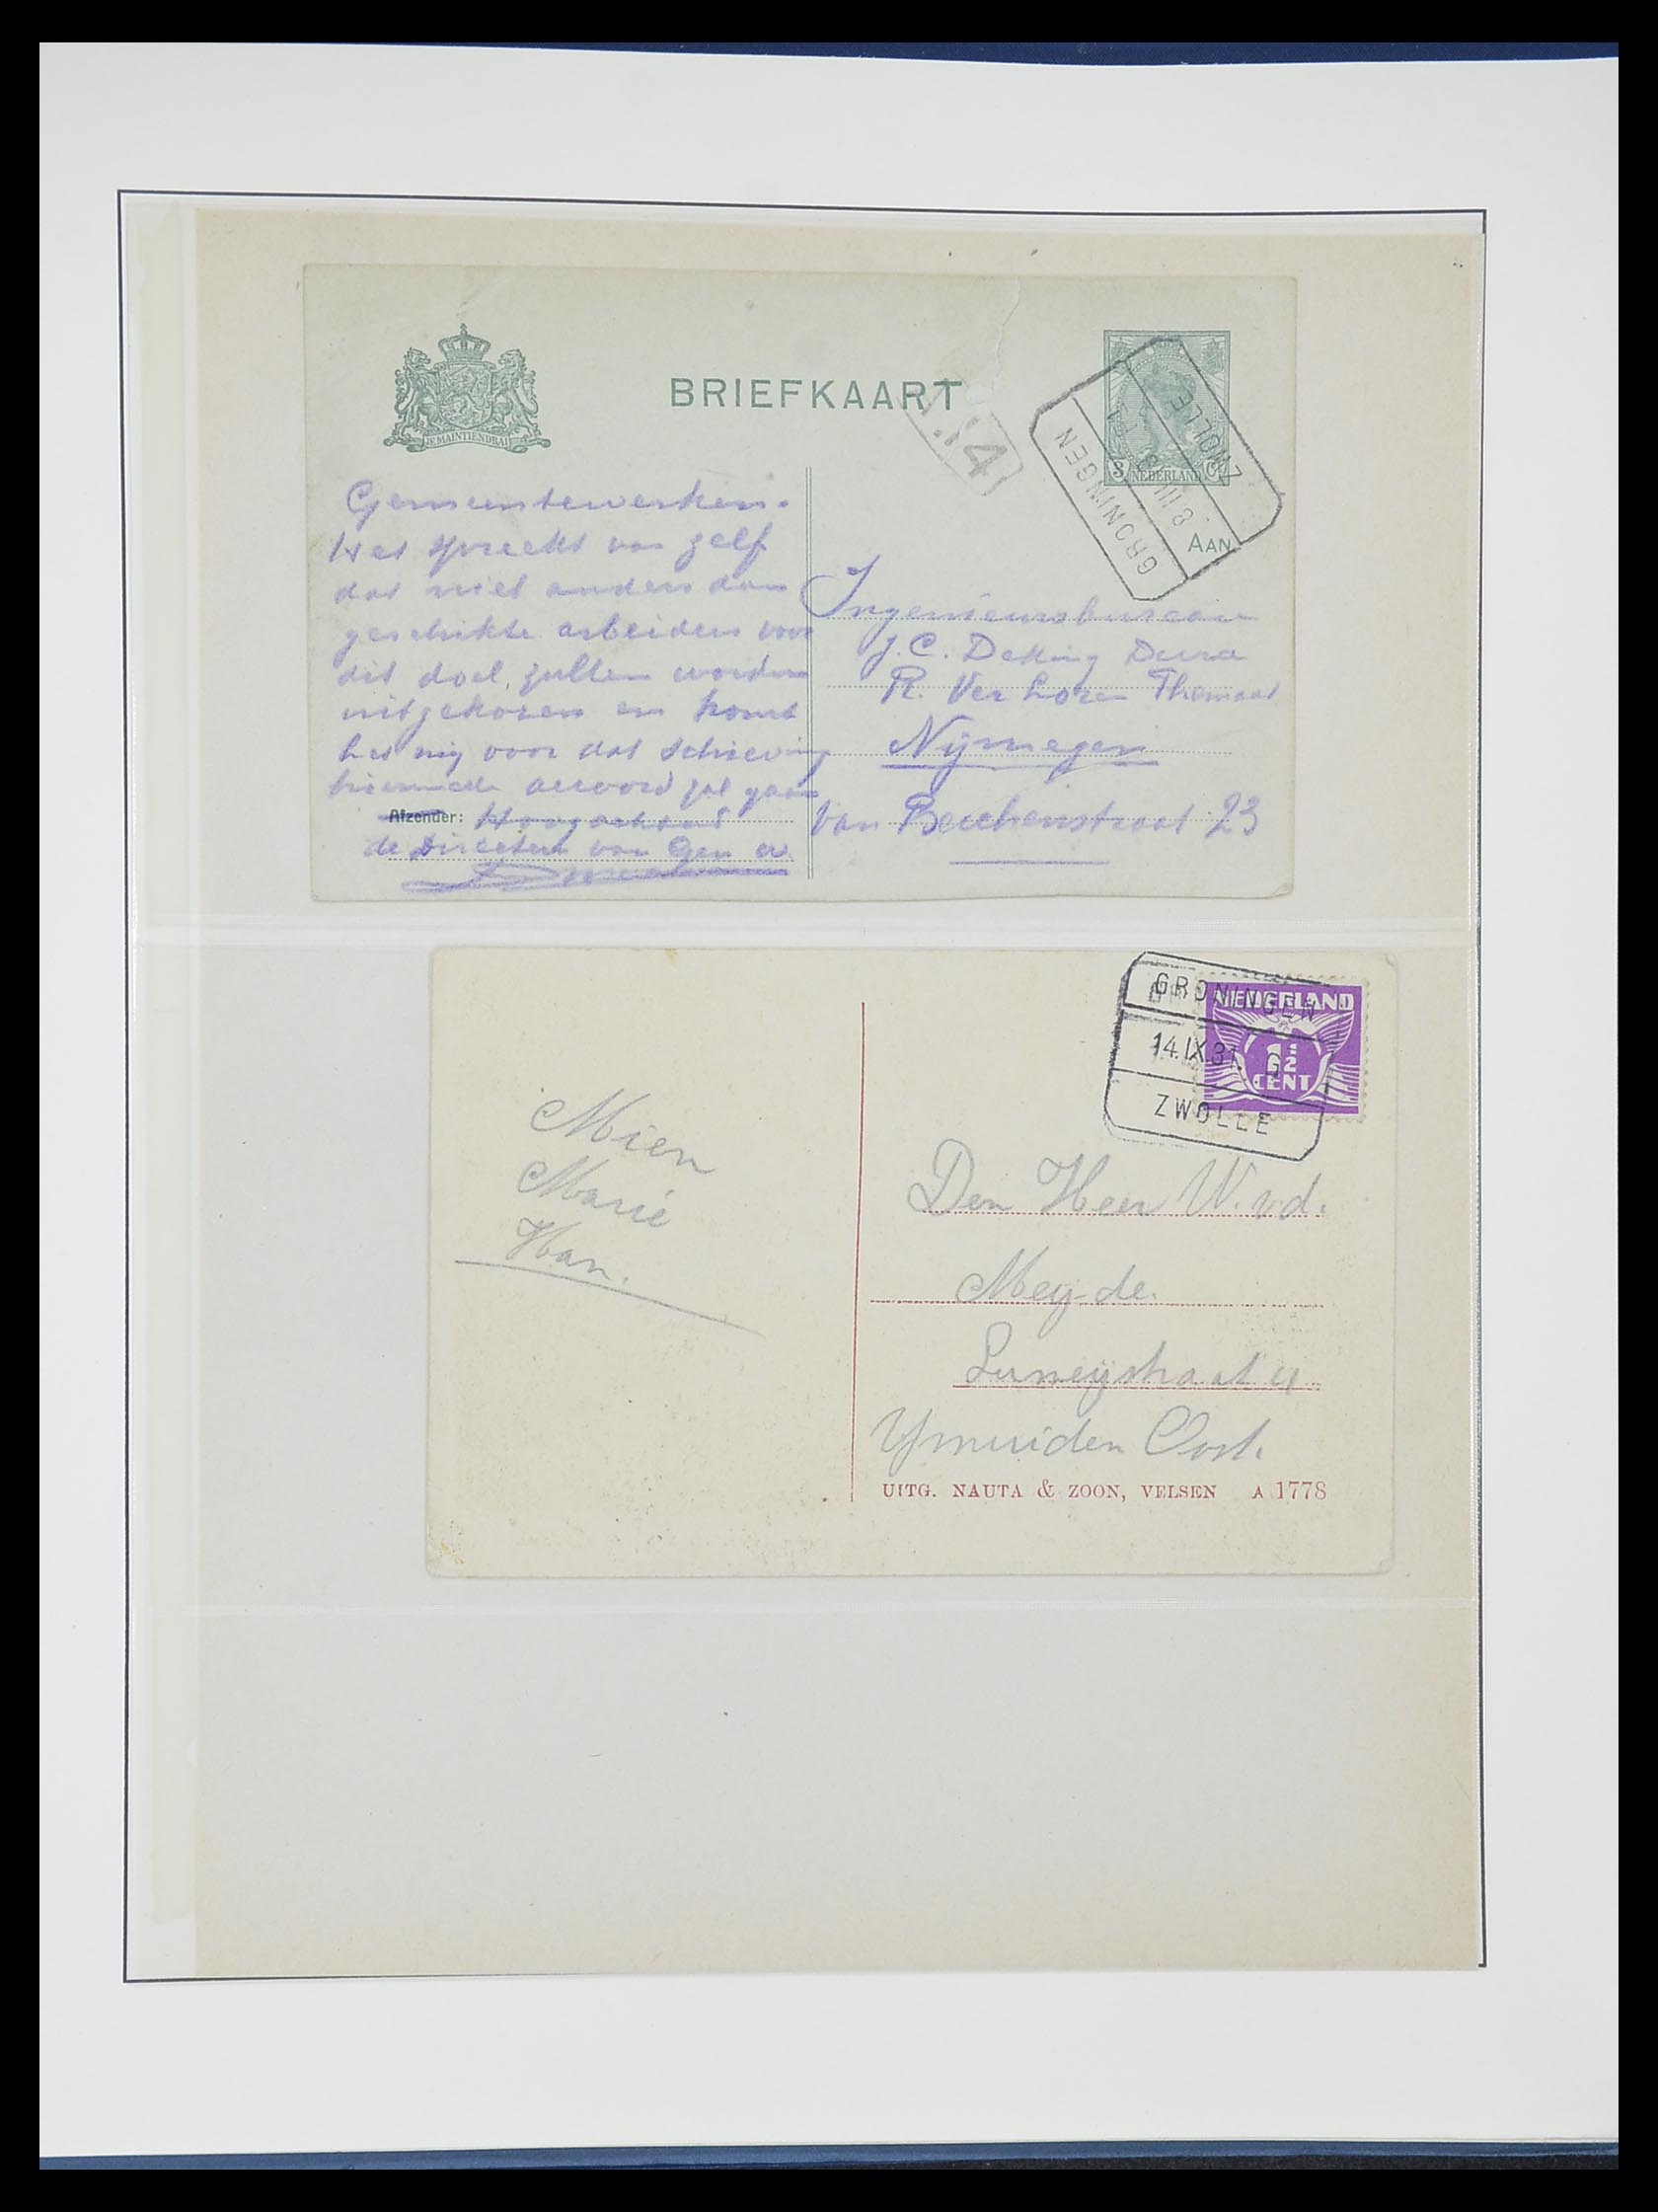 BRIEFKAART
JE MAINTIENDRAI
3 NEDERLAND C
GRONINGEN
8 III
ZWOLLE
AAN
Gemeentewerken.
Het spreekt van zelf
dat niet anders dan
geschikte arbeiders voor
dit doel, zullen worden
uitgekozen en komt
het mij voor dat Schieving
hiermede accoord zal gaan
Afzender: Hoogachtend
de Directeur van Gem w.
Ingenieursbureau
J. C. Dekking Dura
R. Ver Loren Themaat
Nijmegen
Van Berchenstraat 23
GRONINGEN
14.IX.31.
ZWOLLE
NEDERLAND
1½
CENT
Mien
Marie
Han.
Den Heer W. v.d.
Mey-de.
Lumeystraat 4
Ymuiden Oost.
UITG. NAUTA & ZOON, VELSEN A 1778